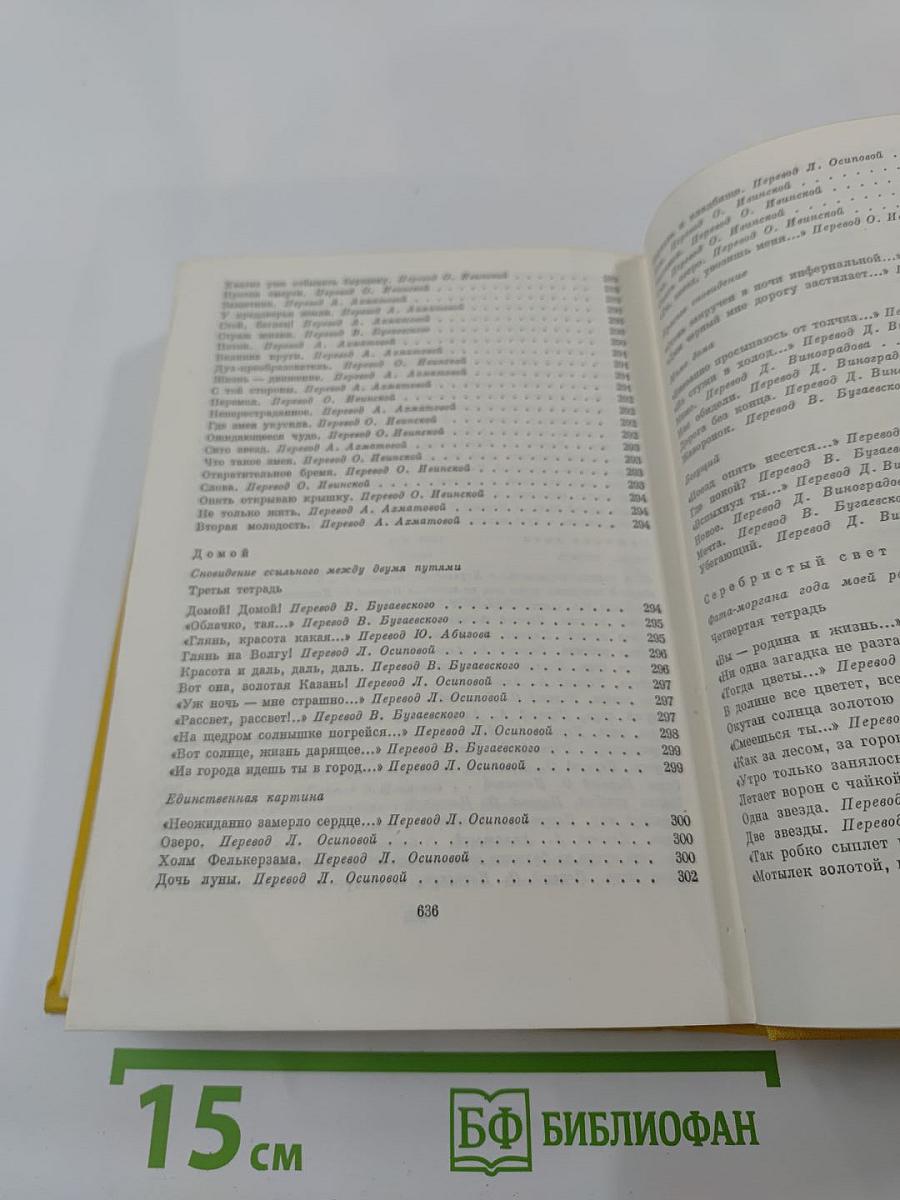 Перевод О. Ивинской
Против смерти. Перевод О. Ивинской
Защитник. Перевод А. Ахматовой
У преддверья земли. Перевод А. Ахматовой
Стой, беглец! Перевод А. Ахматовой
Страх жизни. Перевод В. Бугаевского
Поток. Перевод А. Ахматовой
Великие круги. Перевод А. Ахматовой
Дух-преобразователь. Перевод О. Ивинской
Жизнь — движение. Перевод А. Ахматовой
С той стороны. Перевод А. Ахматовой
Перевод О. Ивинской 292
Неперестраданное. Перевод А. Ахматовой 292
Где змея укусила. Перевод О. Ивинской 292
Ожидающееся чудо. Перевод О. Ивинской 292
Сито звезд. Перевод А. Ахматовой 293
Что такое змея. Перевод О. Ивинской 293
Отвратительное бремя. Перевод О. Ивинской 293
Слова. Перевод О. Ивинской 293
Опять открываю крышку. Перевод О. Ивинской 294
Не только жить. Перевод А. Ахматовой 294
Вторая молодость. Перевод А. Ахматовой 294
Домой
Сновидение ссыльного между двумя путями
Третья тетрадь
Домой! Домой! Перевод В. Бугаевского 294
«Облачко, тая...» Перевод В. Бугаевского 295
«Глянь, красота какая...» Перевод Ю. Абызова 295
Глянь на Волгу! Перевод Л. Осиповой 296
Красота и даль, даль, даль. Перевод В. Бугаевского 296
Вот она, золотая Казань! Перевод Л. Осиповой 297
«Уж ночь — мне страшно...» Перевод Л. Осиповой 297
«Рассвет, рассвет!..» Перевод В. Бугаевского 297
«На щедром солнышке погрейся...» Перевод Л. Осиповой 298
«Вот солнце, жизнь дарящее...» Перевод В. Бугаевского 299
«Из города идешь ты в город...» Перевод Л. Осиповой 299
Единственная картина
«Неожиданно замерло сердце...» Перевод Л. Осиповой 300
Озеро. Перевод Л. Осиповой 300
Холм Фелькерзама. Перевод Л. Осиповой 300
Дочь луны. Перевод Л. Осиповой 302
636
кладбище. Перевод Л. Осиповой
Перевод О. Ивинской
Перевод О. Ивинской
Перевод О. Ивинской
Перевод О. Ивинской
увозишь меня...» Перевод О.
сновидение
закручен в ночи инфернальной...»
черный мне дорогу застилает...»
дома
просыпаюсь от толчка...»
стужи в холод...» Перевод Д.
Перевод Д. Виноградова
обидели. Перевод Д. Виноград
Дорога без конца. Перевод Д.
Жаворонок. Перевод В. Бугаевско
Бегущий
опять несется...» Перевод
Где покой? Перевод В. Бугаев
«Вспыхнул ты...» Перевод Д. Ви
Новое. Перевод Д. Виноградов
Мечта. Перевод В. Бугаевско
Убегающий. Перевод Д. Вин
Серебристый свет
Фата-моргана года моей ро
Четвертая тетрадь
«Вы — родина и жизнь...»
«Ни одна загадка не разга
«Тогда цветы...» Перевод
В долине все цветет, все
Окутан солнца золотою
«Смеешься ты...» Перево
«Как за лесом, за горо
«Утро только занялось
Летает ворон с чайкой
Одна звезда. Перевод
Две звезды. Перевод
«Так робко сыплет
«Мотылек золотой,
15 см
БФ БИБЛИОФАН